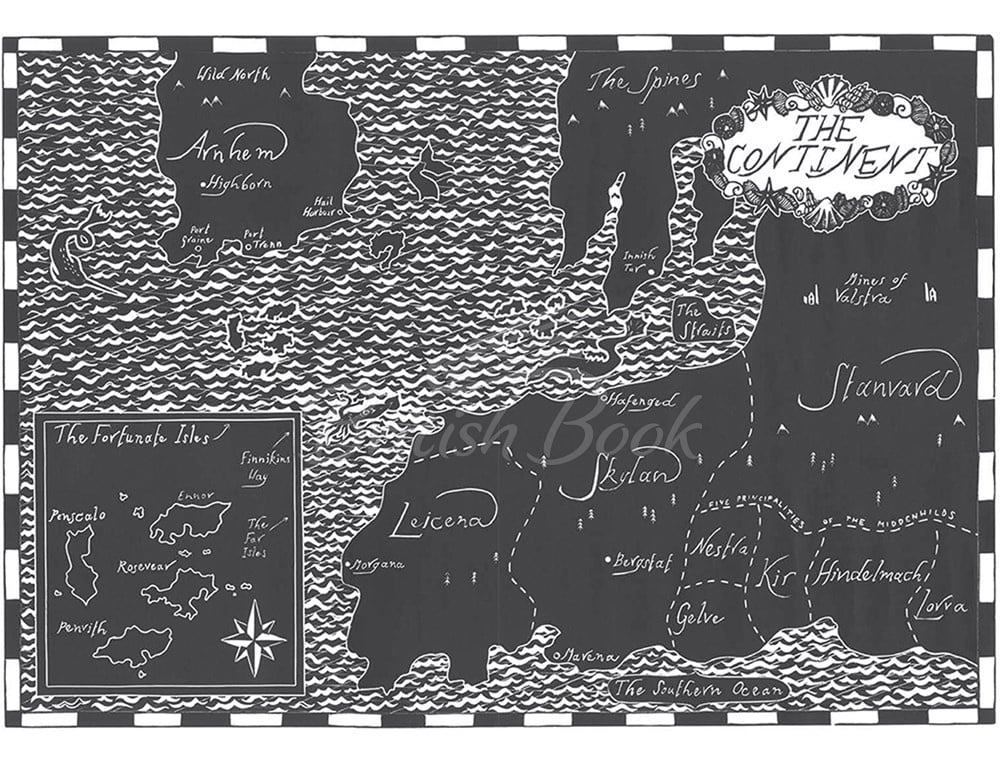 THE
CONTINENT
Wild North
Arnhem
Highborn
Hail
Harbour
Port
Graine
Port
Trenn
The Spines
Innish
Tor
The
Straits
Mines of
Valstva
Stanvard
Hafenged
Skylan
Bergstat
Leicena
Morgana
Mavena
FIVE PRINCIPALITIES OF THE MIDDENWILDS
Nestra
Kir
Hindelmach
Lovra
Gelve
The Southern Ocean
The Fortunate Isles
Finnikins
Way
Ennor
Penscalo
The
Far
Isles
Rosevear
Penrith
British Book